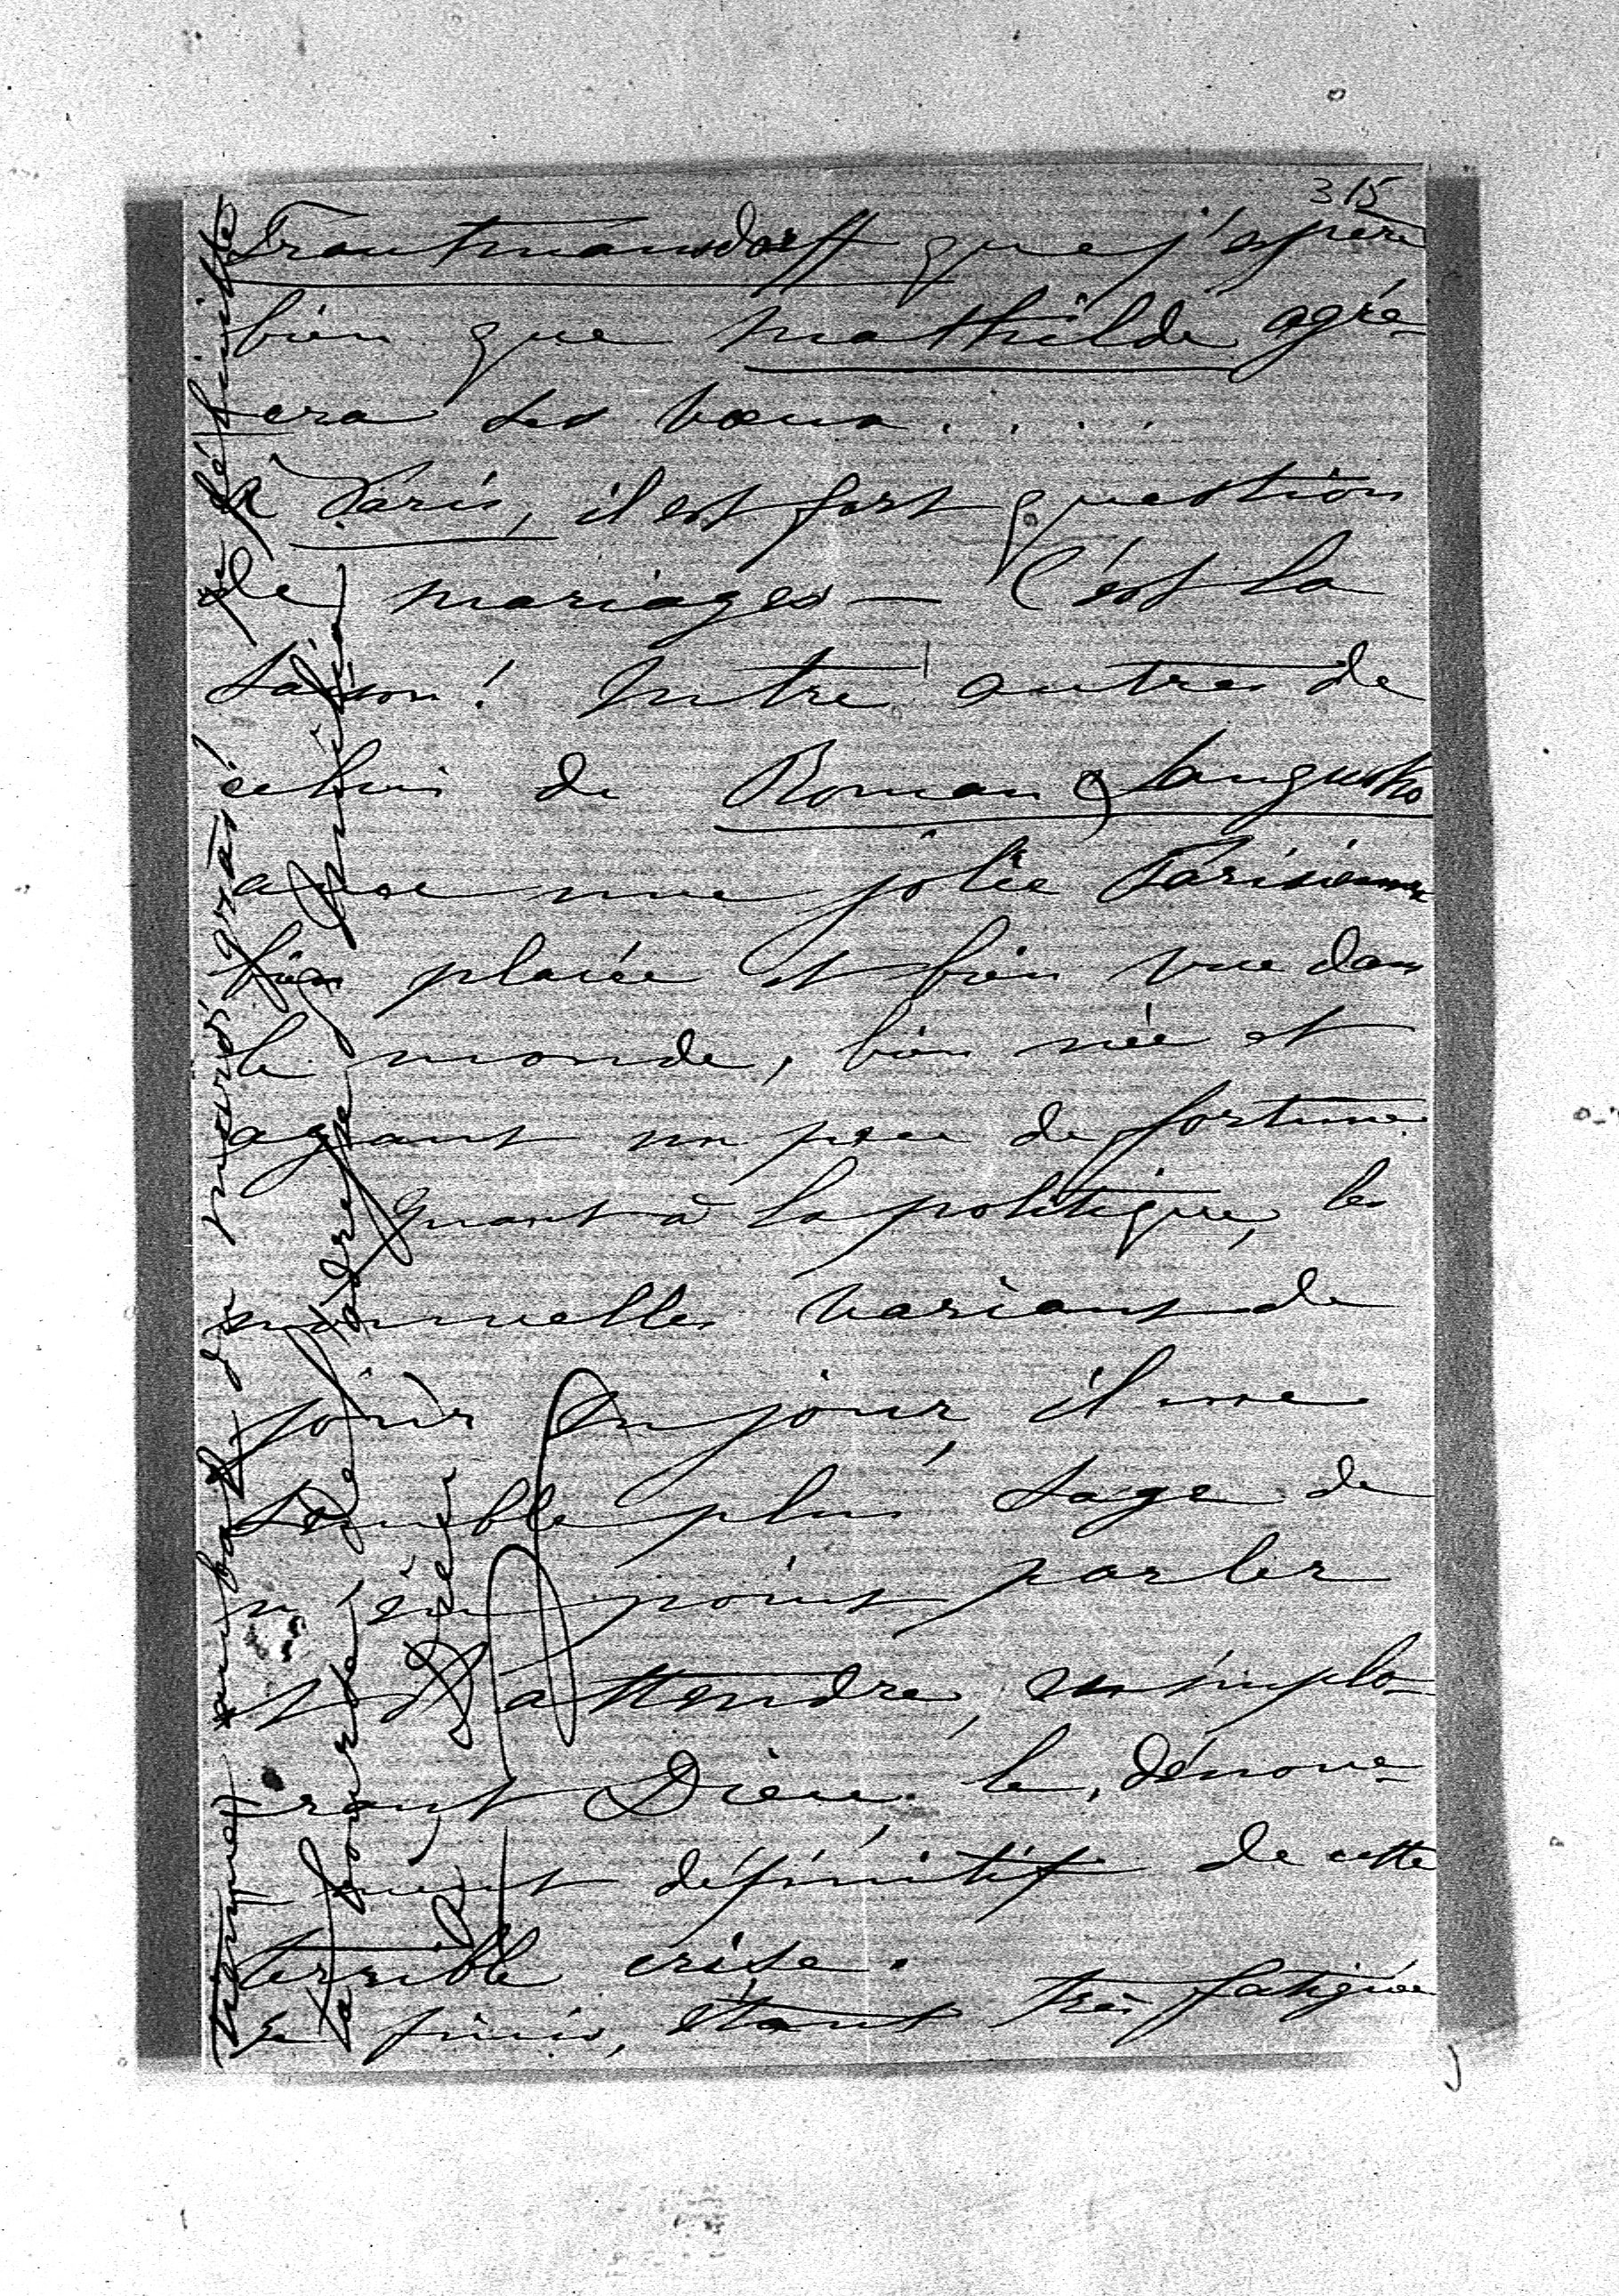 315
Trautmansdorff que j'espère
bien que Mathilde agré-
era ses vœux . . . . .
à Paris, il est fort question
de mariages — C'est la
saison! Entre autres de
celui de Roman Sanguszko
avec une jolie Parisienne
bien placée et bien vue dans
le monde, bien née et
ayant un peu de fortune.
Quant à la politique, les
nouvelles variant de
jour en jour, il me
semble plus sage de
n'en point parler
et d'attendre, en implo-
rant Dieu, le dénoue-
ment définitif de cette
terrible crise.
Je finis, étant très fatiguée
au bas de mardi gras!